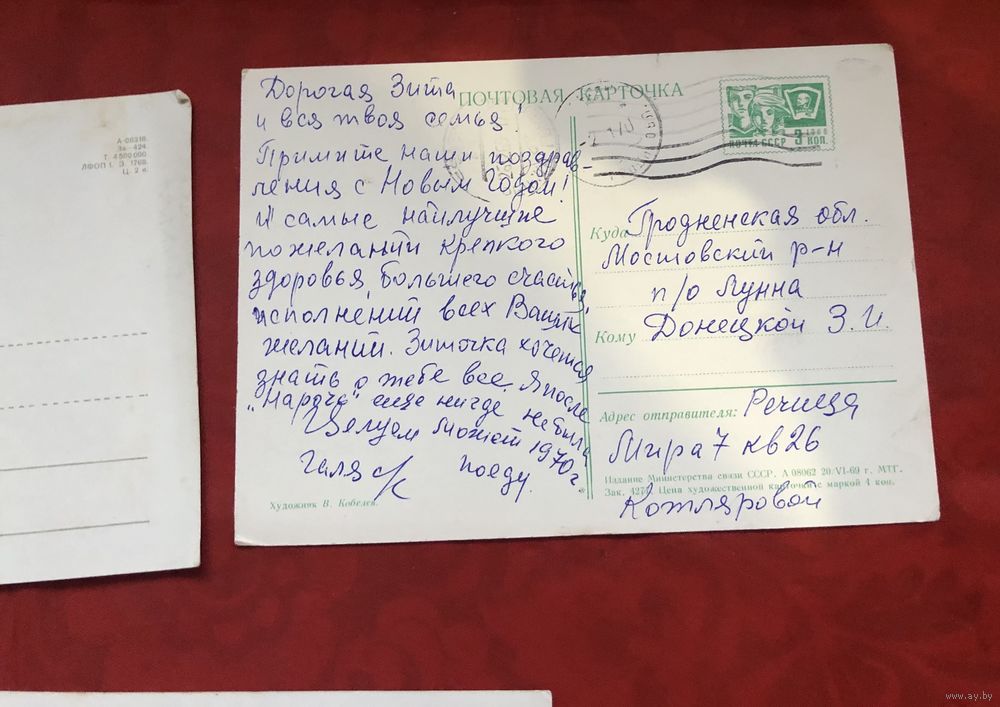 А-08316.
За- 424.
Т. 4 560 000.
Ц. 2 к.
ПОЧТОВАЯ КАРТОЧКА
Дорогая Зита
и вся твоя семья!
Примите наши поздрав-
ления с Новым Годом!
И самые наилучшие
пожеланий крепкого
здоровья, большего счастья,
исполнений всех Ваших
желаний. Зиточка хочется
знать о тебе все. Я после
"Нарочь" еще нигде не была
Целуем Может 1970г
Галя с/к поеду.
Художник В. Кобелев.
1966
ПОЧТА СССР 3 КОП.
Куда Гродненская обл.
Мостовский р-н
п/о Лунна
Кому Донецкой З.И.
Адрес отправителя: Речица
Мира 7 кв 26
Издание Министерства связи СССР. А 08062 20/VI-69 г. МТГ.
Зак. 4274. Цена художественной карточки с маркой 4 коп.
Котляровой
www.ay.by